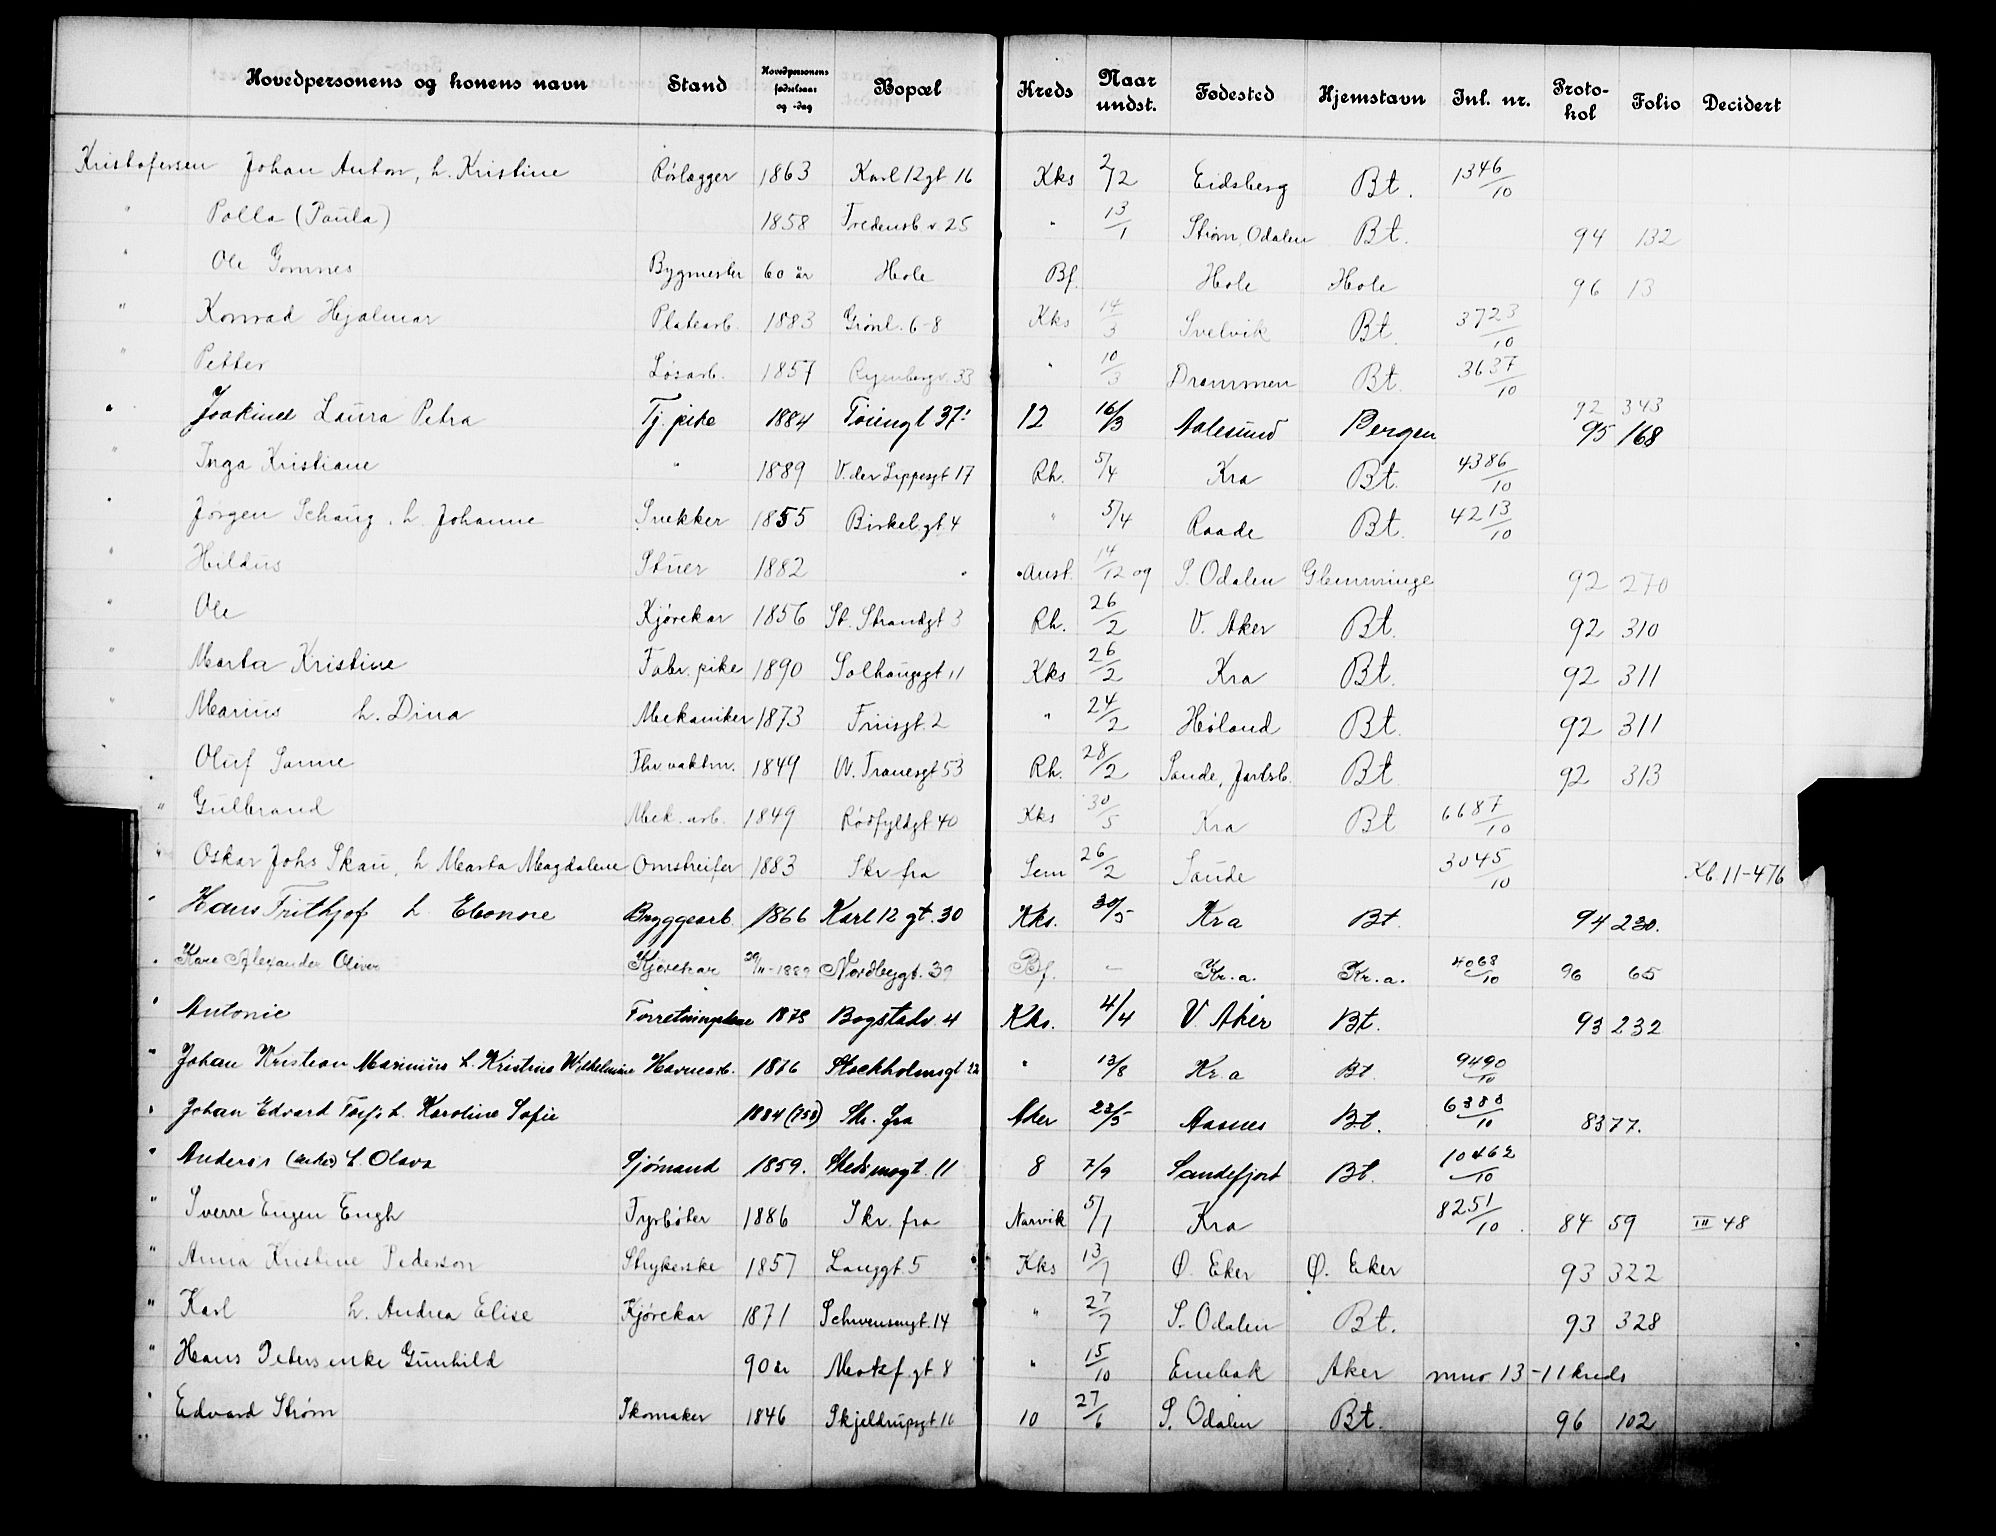 Hovedpersonens og konens navn Stand Hovedpersonens fødselsaar og -dag Bopæl Kreds Naar undst. Fødested Hjemstavn Inl. nr. Protokol Folio Decidert
Kristofersen Johan Anton, h. Kristine Rørlægger 1863 Karl 12 gt 16 Kks 2/12 Eidsberg Bt. 1346/10
" Palla (Paula) 1858 Fredensb. v. 25 " 13/1 Strøm, Odalen Bt. 94 132
" Ole Gomnes Bygmester 60 år Hole Bf. Hole Hole 96 13
" Konrad Hjalmar Platearb. 1883 Grønl. 6-8 Kks 14/3 Svelvik Bt. 3723/10
" Petter Løsarb. 1857 Ryenbergv. 33 " 10/3 Drammen Bt. 3637/10
" Joakine Laura Petra Tj. pike 1884 Tøiengt 37 12 16/3 Aalesund Bergen 92 343 95 168
" Inga Kristiane " 1889 V. der Lippesgt 17 Rh. 5/4 Kra Bt. 4386/10
" Jørgen Schaug, h. Johanne Snekker 1855 Birkel. gt 4 " 5/4 Raade Bt. 4213/10
" Hildus Stuer 1882 Anst. 14/12 og S. Odalen Glemminge 92 270
" Ole Kjørekar 1856 St. Strandgt 3 Rh. 26/2 V. Aker Bt. 92 310
" Marta Kristine Fabr. pike 1890 Solhaugsgt 11 Kks 26/2 Kra Bt. 92 311
" Marius h. Dina Mekaniker 1873 Friisgt 2 " 24/2 Høland Bt. 92 311
" Oluf Sanne Fhv. vaktm. 1849 W. Tranesgt 53 Rh. 28/2 Sande, Jarlsb. Bt. 92 313
" Gulbrand Mek. arb. 1849 Rødfyldgt 40 Kks 30/5 Kra Bt 6687/10
" Oskar Johs Skau, h Marta Magdalene Omstreifer 1883 Skr fra Sem 26/2 Sande 3045/10 Kb. 11-476
" Hans Frithjof h. Eleonore Bryggearb. 1866 Karl 12 gt. 30 Kks. 30/5 Kra Bt 94 230.
" Kare Alexander Oliver Kjørekar 29/11-1882 Nordbygt. 39 Bf. — Kr.a. Kr.a. 4068/10 96 65
" Antonie 1873 Bogstadv. 4 Kks. 4/4 V. Aker Bt. 93 232
" Johan Kristian Marinius h. Kristine Wilhelmine Havnearb. 1876 Stockholmsgt 22 " 13/8 Kr.a Bt. 9490/10
" Johan Edvard h. Karoline Sofie 1884 (758) Skr. fra Aker 23/5 Aasnes Bt. 6388/10 83 77.
" Anders h. Olava Sjømand 1859. Stedsmogt. 11 8 7/9 Sandefjord Bt. 10462/10
" Sverre Eugen Engh Fyrbøter 1886 Skr. fra Narvik 5/1 Kra 8251/10 84 59 III 48
" Anna Kristine Pederson Strykerske 1857 Langgt. 5 Kks 13/7 Ø. Eker Ø. Eker 93 322
" Karl h. Andrea Elise Kjørekar 1871 Schwensengt. 14 " 27/7 S. Odalen Bt. 93 328
" Hans Peters enke Gunhild 90 år Motzf. gt 8 " 15/10 Enebak Aker mno 13-11 kreds
" Edvard Strøm Skomaker 1846 Skjeldrupsgt 16 10 27/6 S. Odalen Bt. 96 102